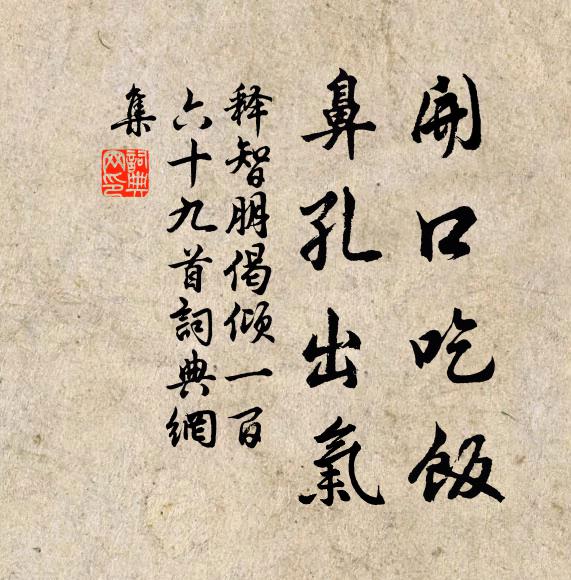 開口吃飯
鼻孔出氣
释智朋偈倾一百
六十九首詞典網
集
詞典網印